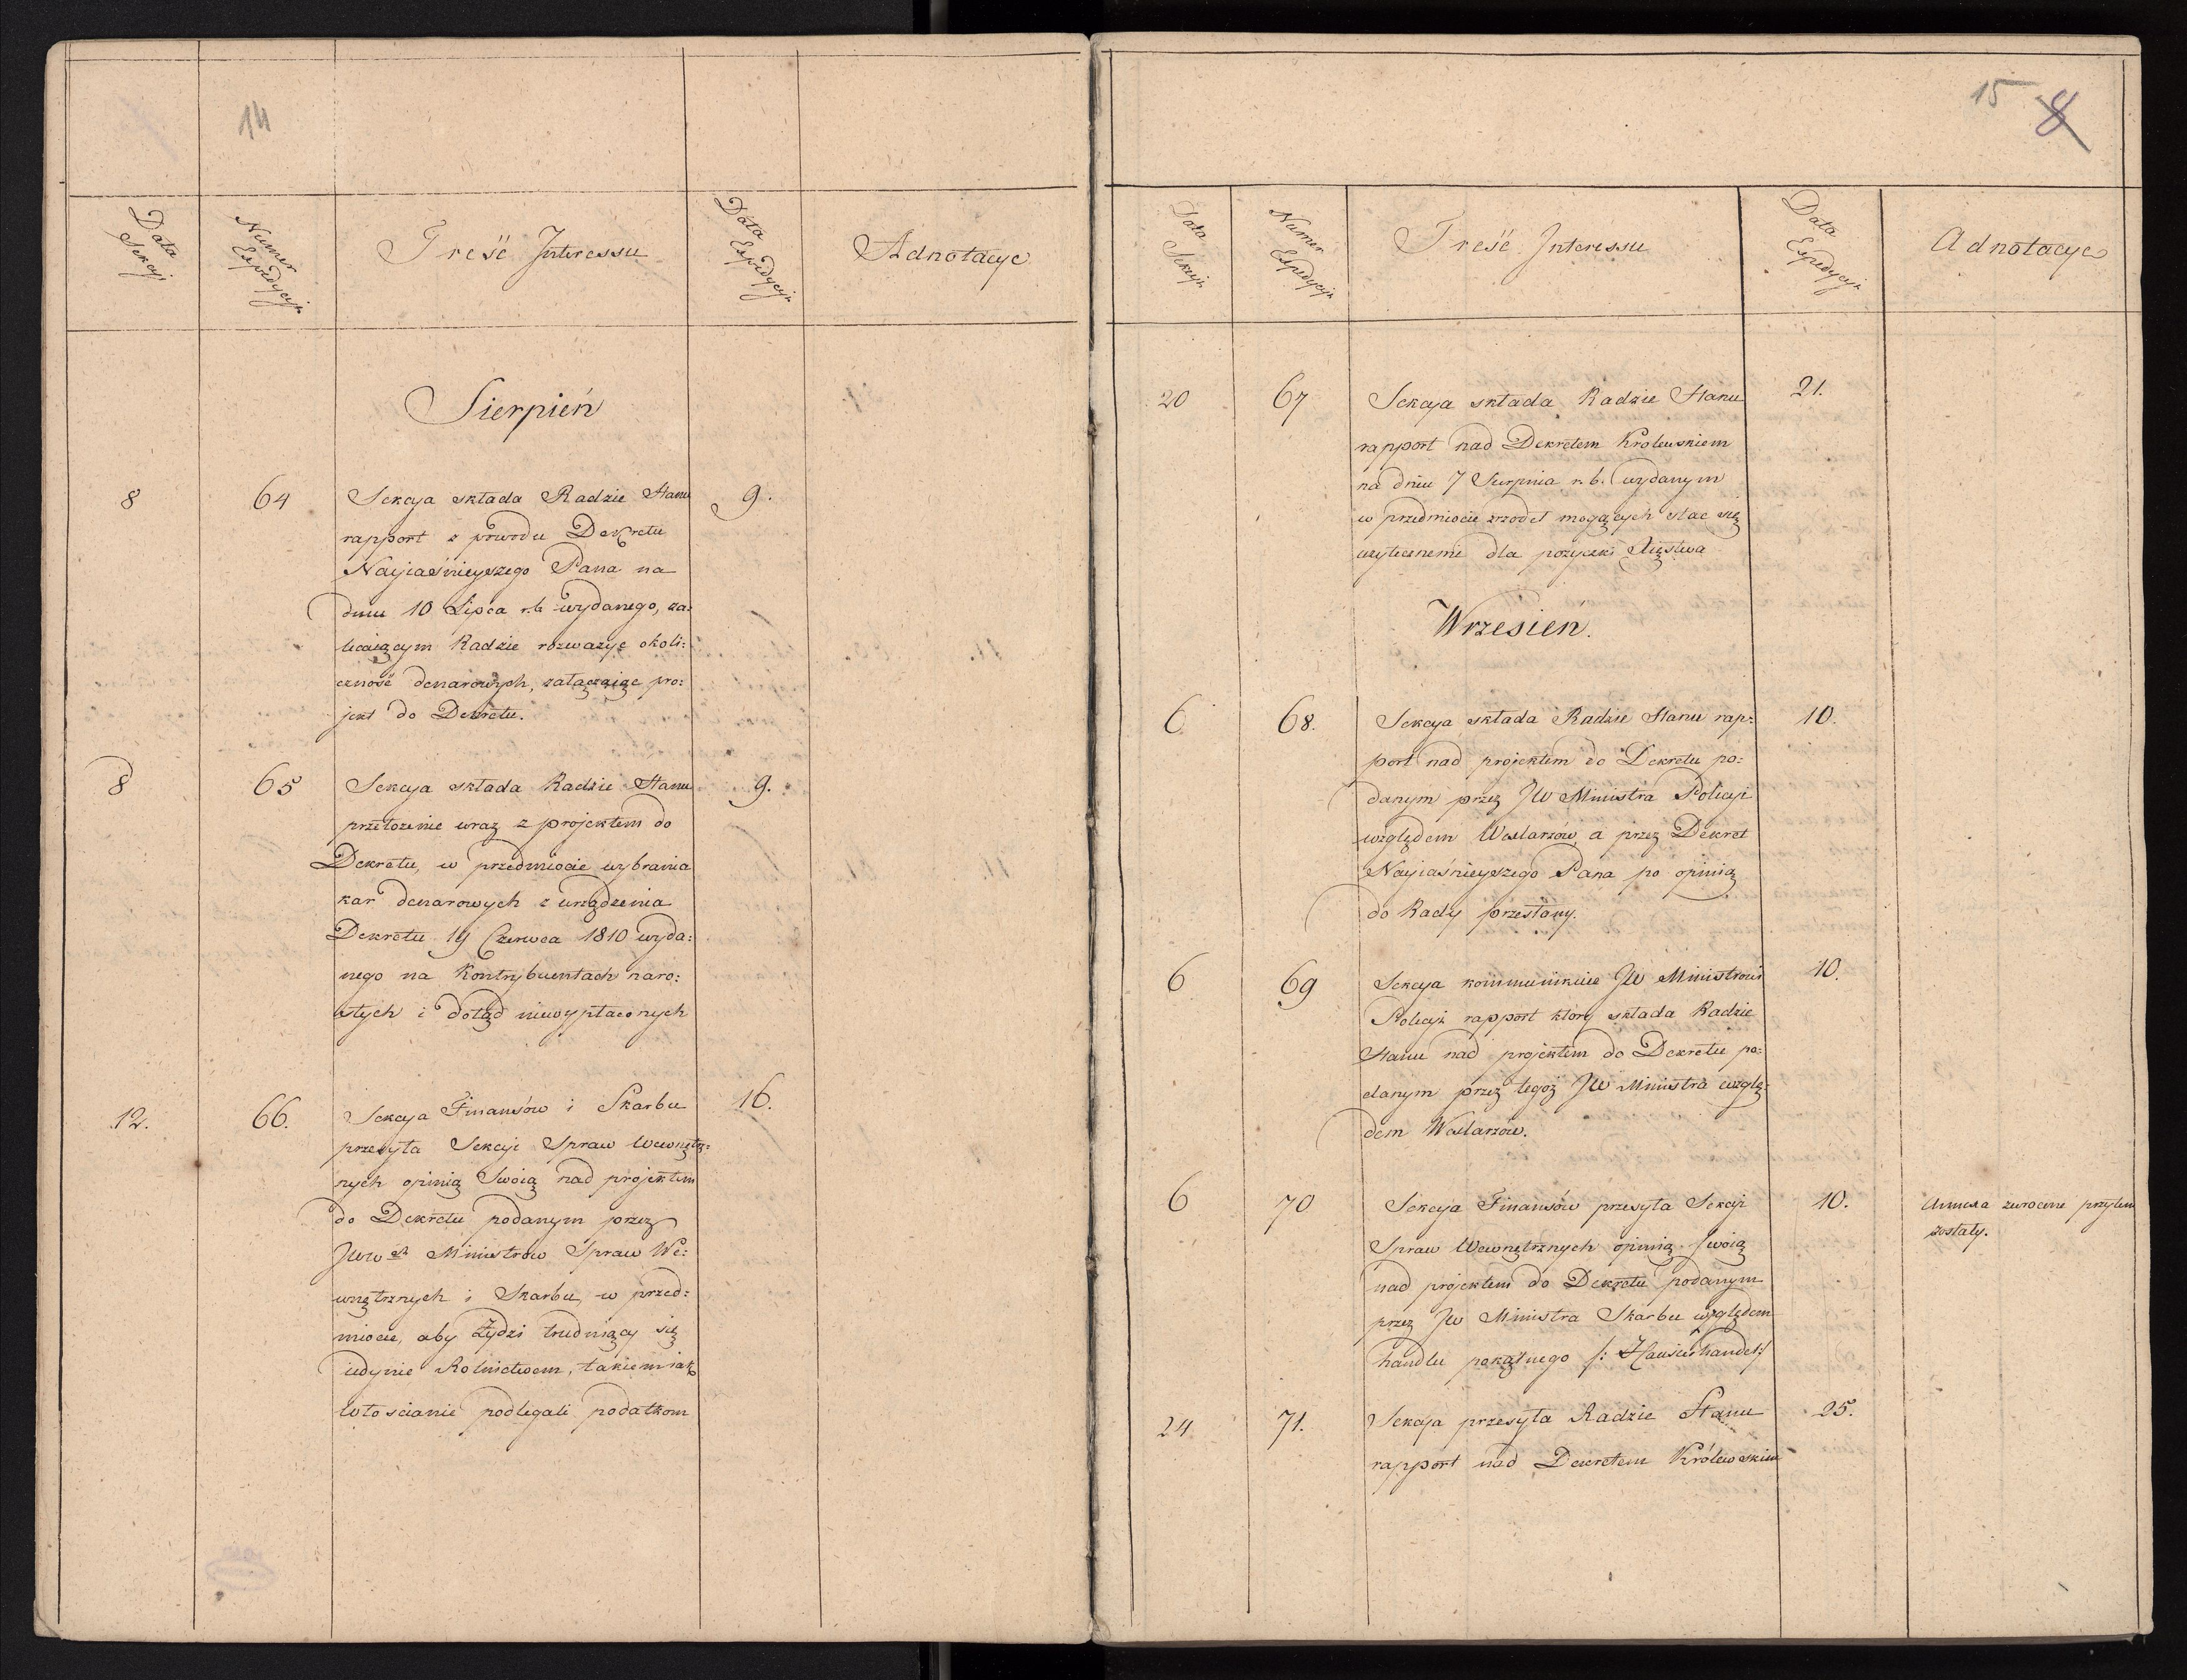 14
Data Sekcji
Numer Expedycyi
Treść Interessu
Data Expedycyi
Adnotacye
Sierpień
8 64 Sekcya składa Radzie Stanu 9.
rapport z powodu Dekretu
Nayiaśnieyszego Pana na
dniu 10 Lipca r.b. wydanego, za=
lecaiącym Radzie rozważyć okoli=
czność denarowych, załączaiąc pro=
jekt do Dekretu.
8 65 Sekcya składa Radzie Stanu 9.
przełożenie wraz z projektem do
Dekretu, w przedmiocie wybrania
kar denarowych z urządzenia
Dekretu 19 Czerwca 1810 wyda=
nego na Kontrybuentach naro=
słych i dotąd niewypłaconych
12. 66. Sekcya Finansów i Skarbu 16.
przesyła Sekcyi Spraw Wewnętrz=
nych opinią Swoią nad projektem
do Dekretu podanym przez
JWW Ministrów Spraw We=
wnętrznych i Skarbu, w przed=
miocie, aby Żydzi trudniący się
iedynie Rolnictwem, takiem iak
Włoscianie podlegali podatkom
15 8
Data Sekcyi
Numer Expedycyi
Treść Interessu
Data Expedycyi
Adnotacye
20 67 Sekcya składa Radzie Stanu 21.
rapport nad Dekretem Krolewskiem
na dniu 7 Sierpnia r.b. wydanym
w przedmiocie zrzodeł mogących stac się
uzytecznemi dla pożyczki Xięstwa
Wrzesień.
6 68. Sekcya składa Radzie Stanu rap= 10.
port nad projektem do Dekretu po=
danym przez JW Ministra Policyi
względem Waslarzów, a przez Dekret
Nayiaśnieyszego Pana po opinią
do Rady przesłany.
6 69 Sekcya kommunikuie JW Ministrowi 10.
Policyi rapport ktory składa Radzie
Stanu nad projektem do Dekretu po=
danym przez tegoż JW Ministra wzglę=
dem Waslarzów.
6 70 Sekcya Finansów przesyła Sekcyi 10. Annexa zwrocone przytem
Spraw Wewnętrznych opinią swoią zostały.
nad projektem do Dekretu podanym
przez JW Ministra Skarbu względem
handlu pokątnego /: Hausirhandel:/
24 71. Sekcya przesyła Radzie Stanu 25.
rapport nad Dekretem Królewskim